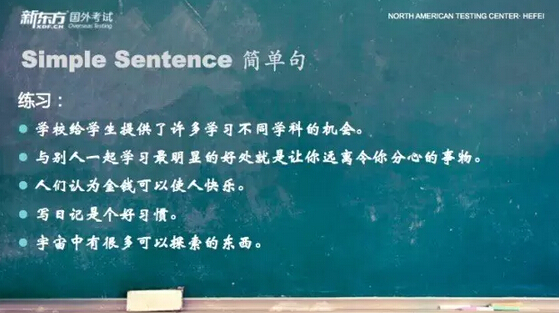 新东方 国外考试
XDF.CN Overseas Testing
NORTH AMERICAN TESTING CENTER· HEFEI
Simple Sentence 简单句
练习：
学校给学生提供了许多学习不同学科的机会。
与别人一起学习最明显的好处就是让你远离令你分心的事物。
人们认为金钱可以使人快乐。
写日记是个好习惯。
宇宙中有很多可以探索的东西。